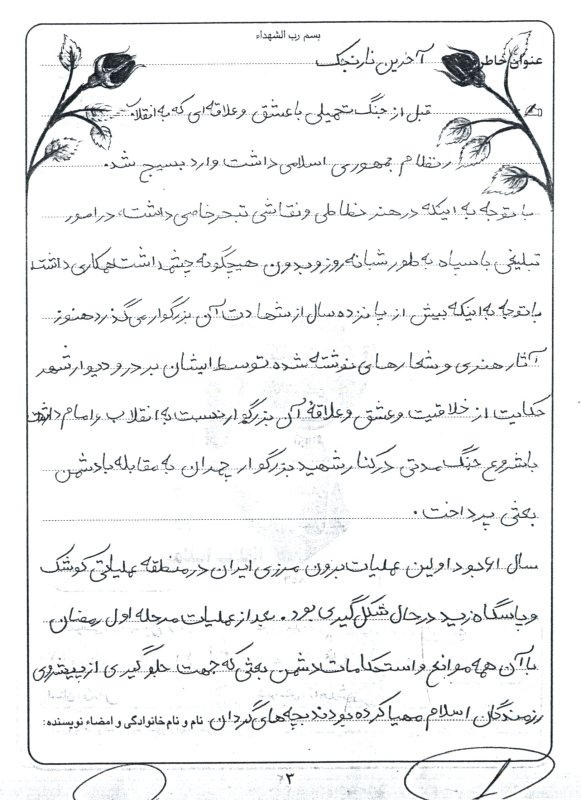 بسم رب الشهداء
عنوان خاطره: آخرین نارنجک
قبل از جنگ تحمیلی با عشق و علاقه‌ای که به انقلاب
نظام جمهوری اسلامی داشت وارد بسیج شد.
با توجه به اینکه در هنر خطاطی و نقاشی تبحر خاصی داشت، در امور
تبلیغی با سپاه به طور شبانه روز و بدون هیچگونه چشمداشت همکاری داشت
با توجه به اینکه بیش از پانزده سال از شهادت آن بزرگوار می گذرد هنوز
آثار هنری و شعارهای نوشته شده توسط ایشان بر در و دیوار شهر
حکایت از خلاقیت و عشق و علاقه آن بزرگوار نسبت به انقلاب و امام دارد
با شروع جنگ مدتی در کنار شهید بزرگوار چمران به مقابله با دشمن
بعثی پرداخت.
سال ۶۱ بود اولین عملیات برون مرزی ایران در منطقه عملیاتی کوشک
و پاسگاه زید در حال شکل گیری بود. بعد از عملیات مرحله اول رمضان
با آن همه موانع و استحکامات دشمن بعثی که جهت جلوگیری از پیشروی
رزمندگان اسلام مهیا کرده بودند بچه های گردان
نام و نام خانوادگی و امضاء نویسنده:
۳